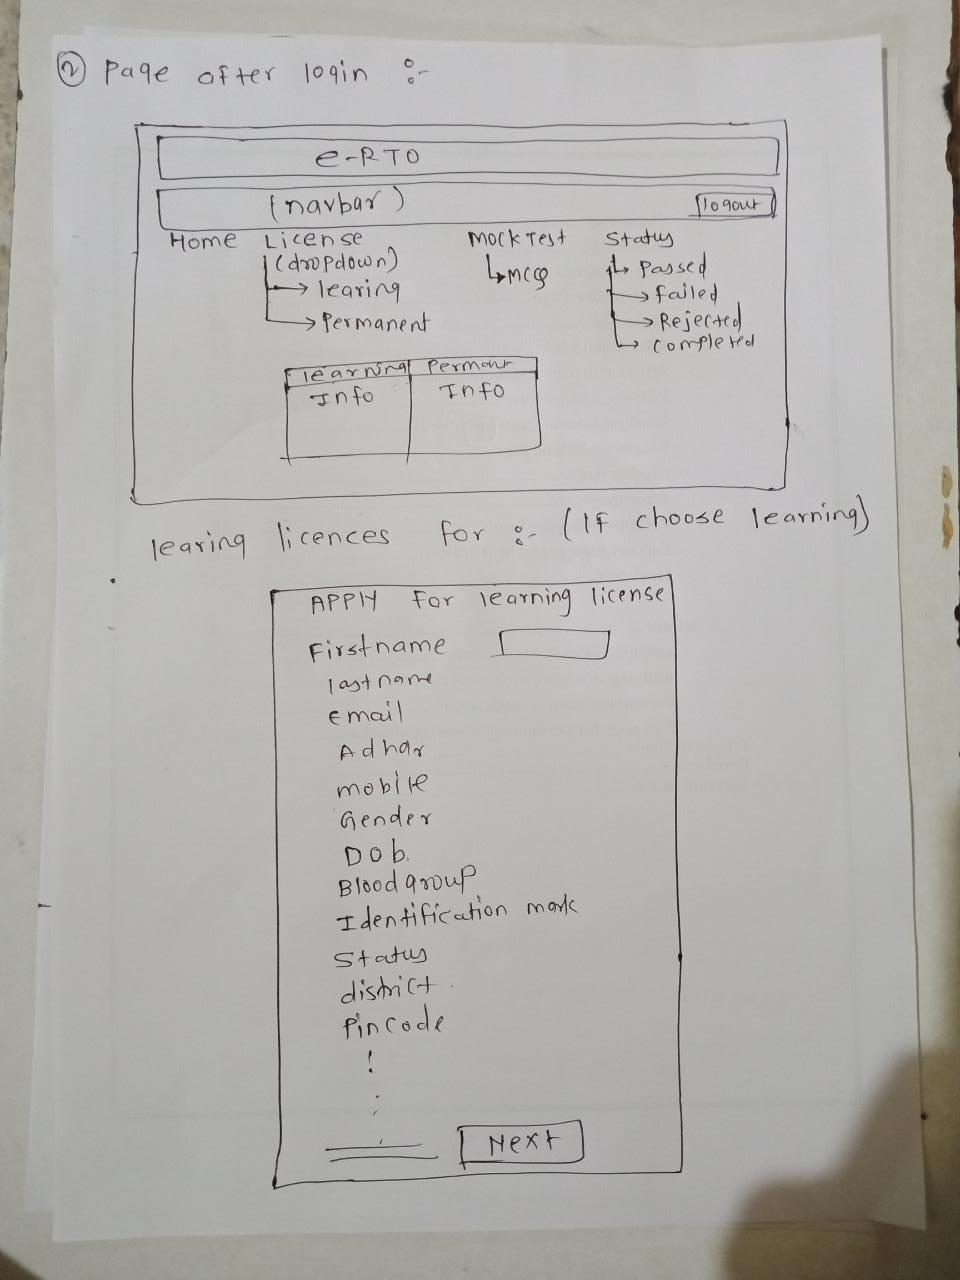 2 Page after login :-
e-RTO
(navbar) logout
Home License Mock Test Status
(dropdown) mcq Passed
learing failed
Permanent Rejected
completed
learning Permant
Info Info
learing licences for :- (If choose learning)
APPly For learning license
Firstname
lastname
Email
Adhar
mobile
Gender
Dob.
Bloodgroup
Identification mark
Status
district.
Pincode
Next